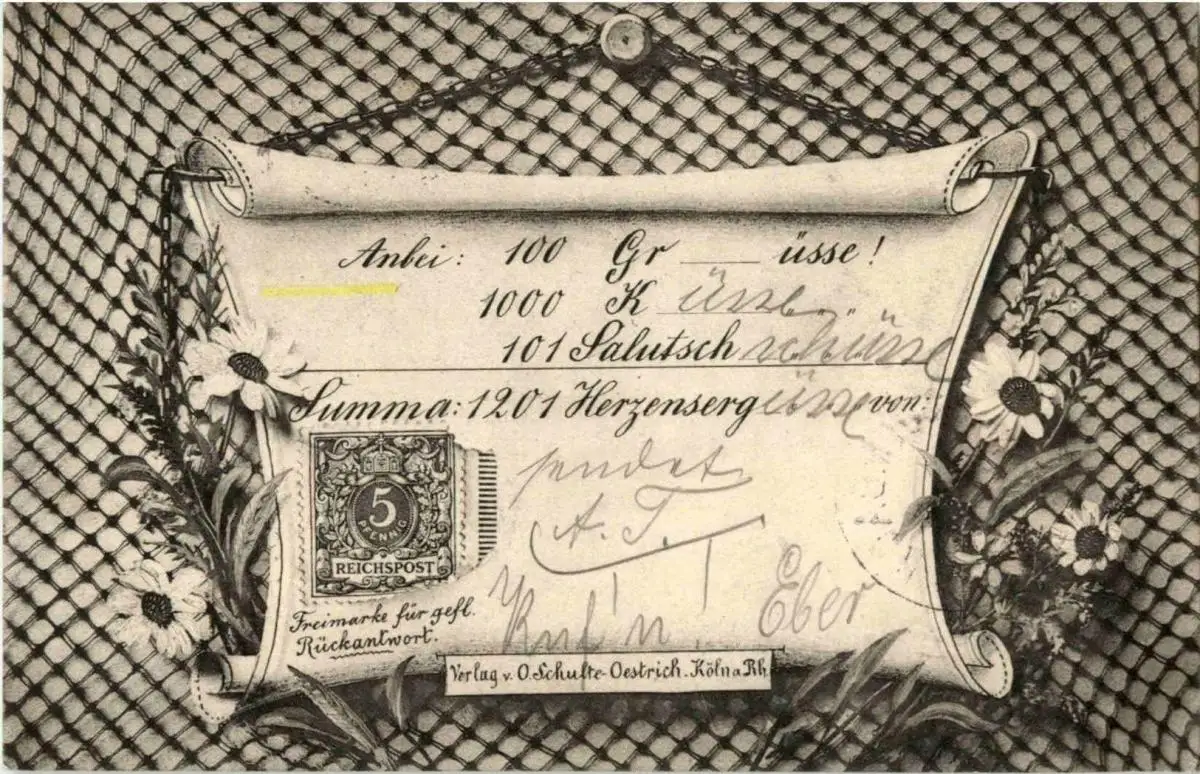 Anbei: 100 Gr ___ üsse!
1000 K üsse
101 Salutsch schüsse
Summa: 1201 Herzensergüsse von:
sendet
A. T.
5
PFENNIG
REICHSPOST
Eber
Freimarke für gefl.
Rückantwort.
Verlag v. O. Schulte-Oestrich. Köln a Rh.